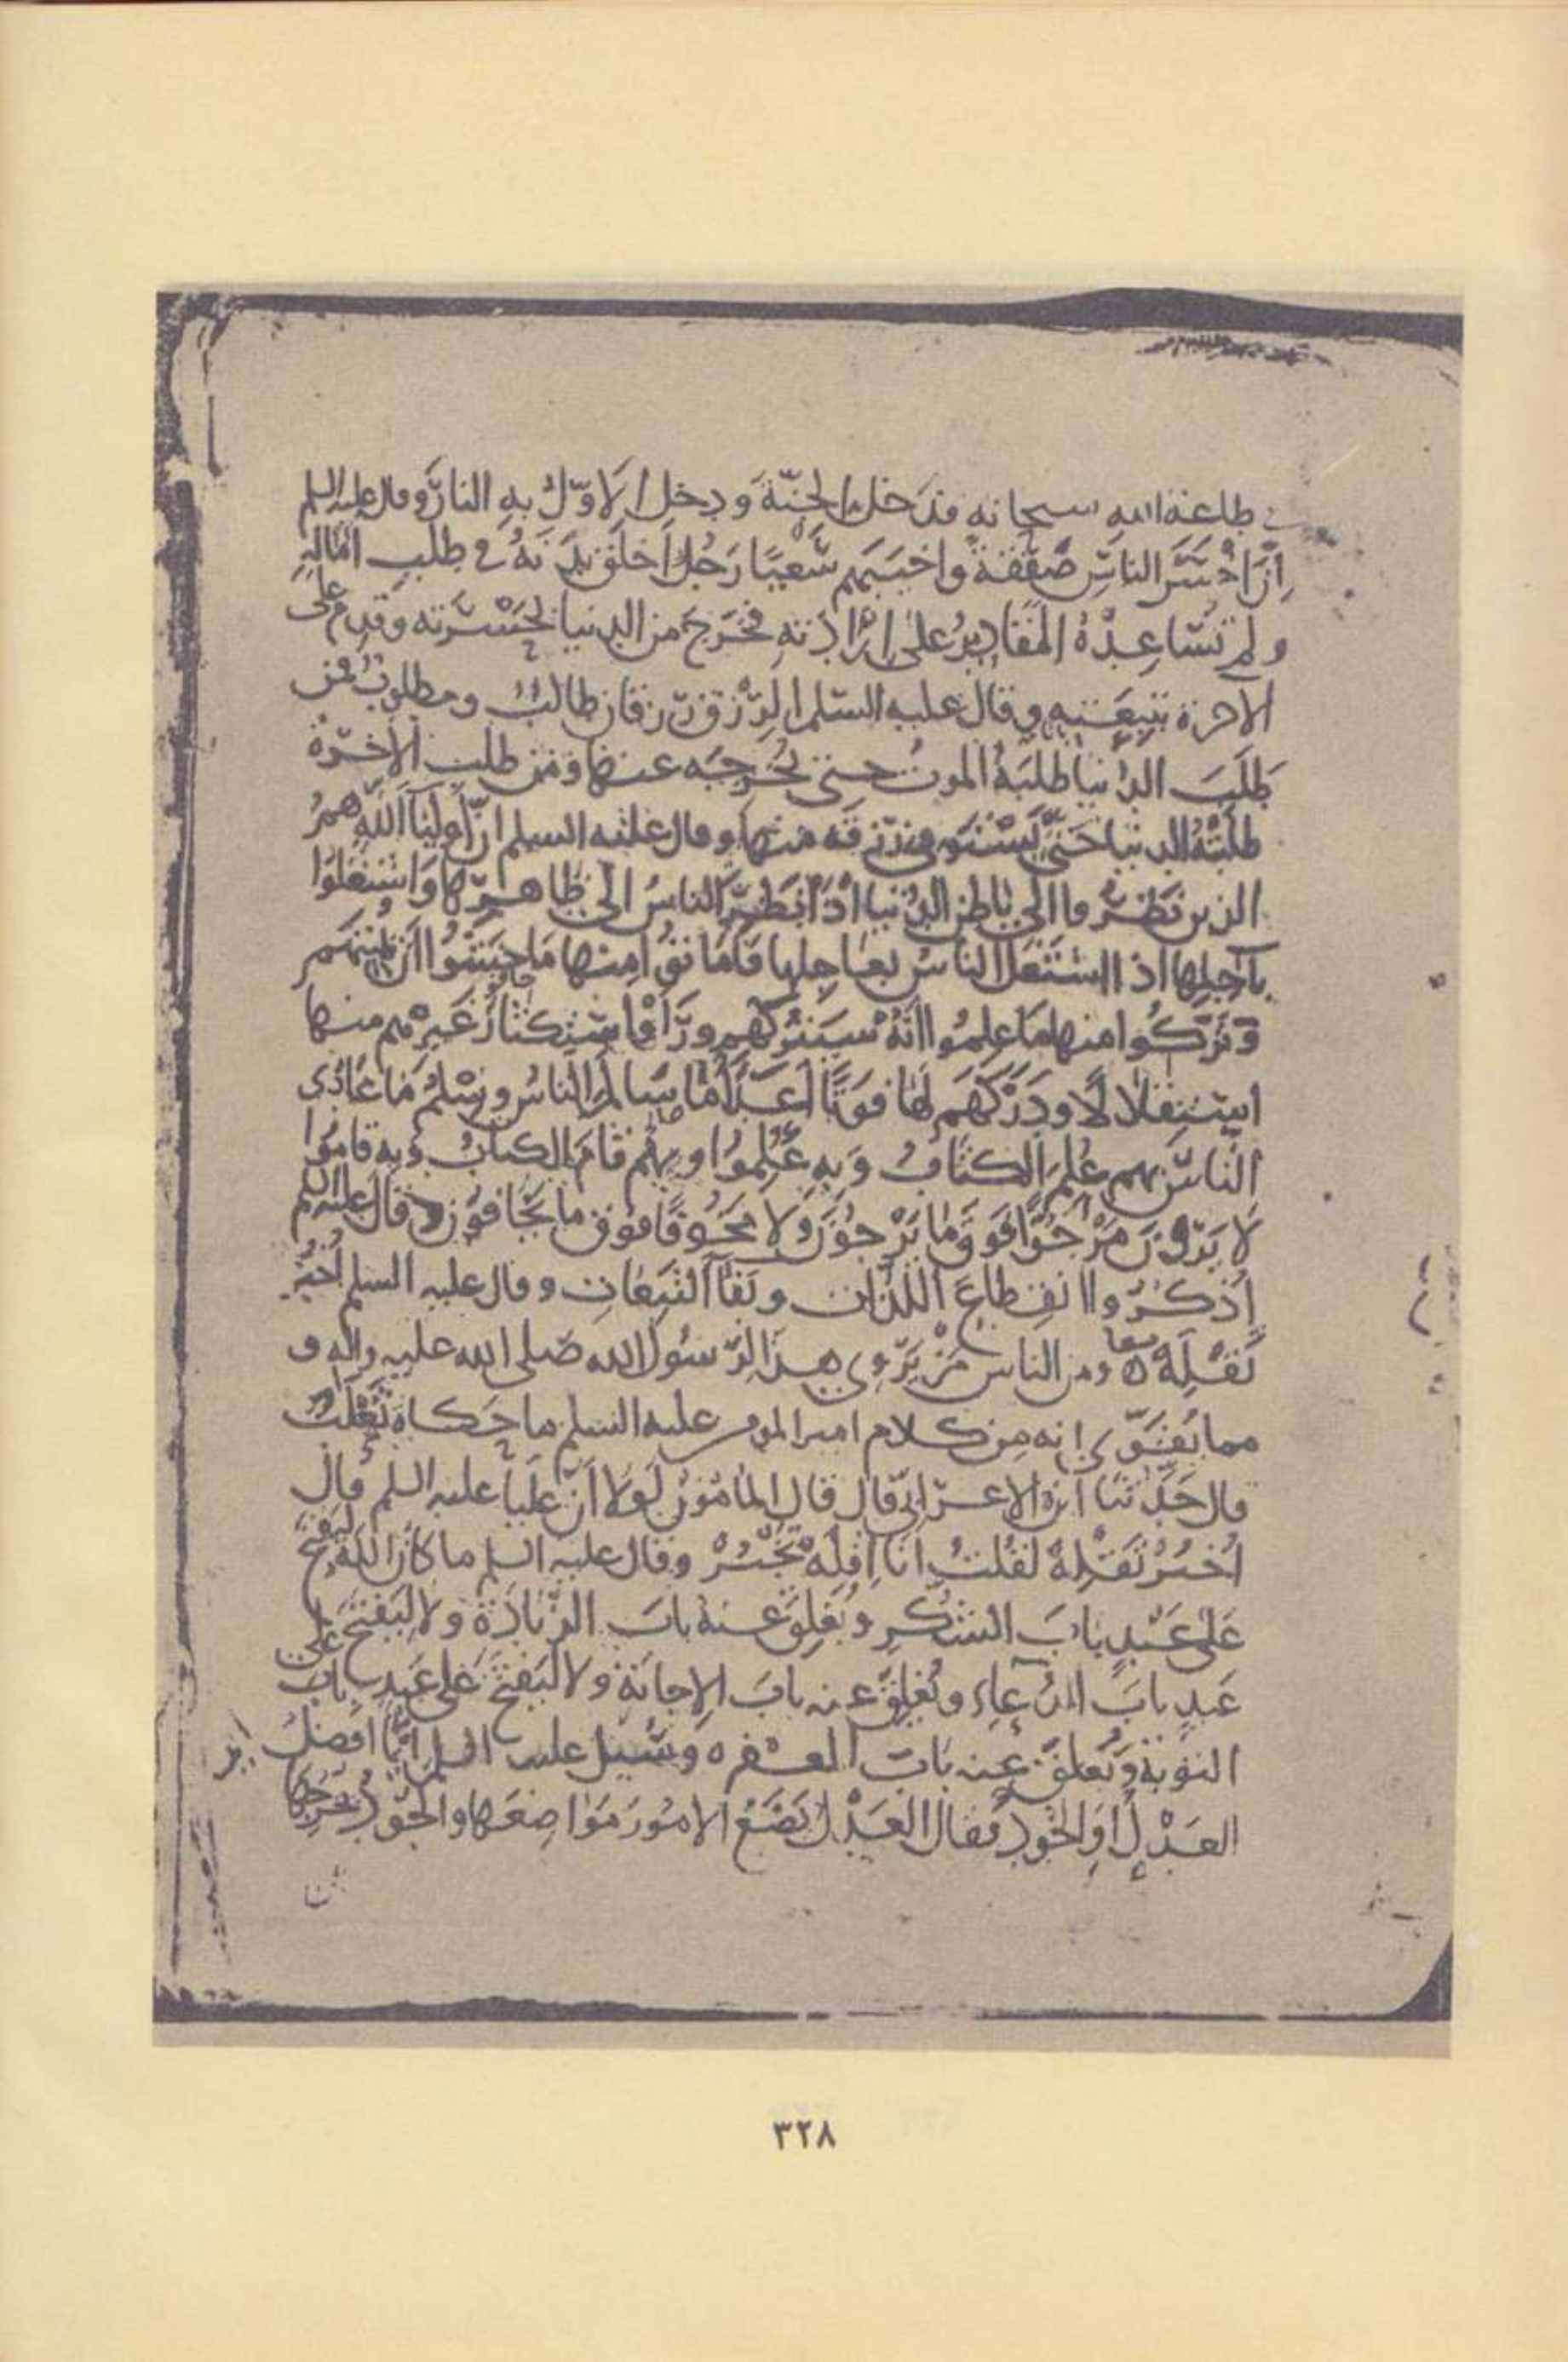 في طاعة الله سبحانه فدخل به الجنّة ودخل الاوّل به النار وقال عليه السلم
اِنّ اخْسَرَ الناسِ صَفْقَةً واخيَبَهم سَعْيًا رَجُلٌ اَخلَقَ بَدَنَهُ في طلبِ امَالِهِ
ولم تُسَاعِدْهُ المَقَادِيرُ على اِرَادَتِهِ فخَرَجَ من الدنيا بحَسْرَته وقدِم على
الاخرة بتَبِعَتِهِ وقال عليه السّلم الرِّزْق رِزقان طالبٌ ومطلوبٌ فمن
طَلَبَ الدُنيا طلبَهُ الموتُ حتى يُخرجَه عنها ومَن طلب الاخرةَ
طلبَتْهُ الدنيا حَتّى يَسْتَوفِيَ رزقَه منها وقال عليه السلم اِنّ اَوليآءَ اللّهِ همُ
الذين نَظَرُوا الى باطن الدُنيا اذَا نَظَرَ الناسُ الى ظاهرِها وَاشتغلوا
بآجِلِها اذا اشتَغَلَ الناسُ بعاجِلِها فَاَمَاتوُا مِنها مَا خَشُوا اَن يُميتَهم
وَتَرَكُوا منها مَا علِمُوا اَنّهُ سَيَترُكُهم ورَاَوا استِكثارَ غَيرهم منها
استِقلالًا ودَرَكَهم لها فَوَتًا اَعدَآءُ مَا سَالمَ الناسُ وسِلْمُ مَا عَادَى
النّاسُ بهم عُلِمَ الكتابُ وَبِهِ عَلِمُوا وبهم قامَ الكتابُ وبه قاموا
لا يَرَوْنَ مَرْجُوًّا فَوقَ مَا يَرْجُونَ ولا مَخُوفًا فوق ما يَخافون وقال عليه السلم
اُذكُرُوا انقِطاعَ اللذّاتِ وبَقآءَ التَّبِعَاتِ وقال عليه السلم اُخبُر
تَقْلِهْ ومن الناس مَنْ يَرْوِي هذا لِرَسُول الله صَلى الله عليه واله و
مما يُقَوِّي انه مِن كلام امير المومنين عليه السلم ما حَكاهُ ثَعْلَبٌ
قال حَدّثنَا ابن الاعرابيّ قال قال المامُونُ لَولا اَنّ عَليًا عليه السلم قال
اُخبُرْ تَقْلِهْ لقُلتُ اَنَا اِقْلِهْ تَخْبُرْ وقال عليه السلم ما كانَ اللهُ لِيَفتحَ
عَلى عَبْدٍ بابَ الشكرِ ويُغلِقَ عنهُ بابَ الزّيادَةِ ولا لِيَفتحَ على
عَبدٍ بابَ الدُعاءِ ويُغلِقَ عنه بابَ الاِجابَةِ ولا ليَفتحَ على عَبدٍ بابَ
التوبة ويُغلِقَ عنه بابَ المغفره وسُئِل عليه السلم ايّما افضلُ
العَدْلُ اَوِ الجُودُ فقال العَدْلُ يَضَعُ الامُورَ مَوَاضِعَها والجُودُ يُخرِجُها
٣٢٨